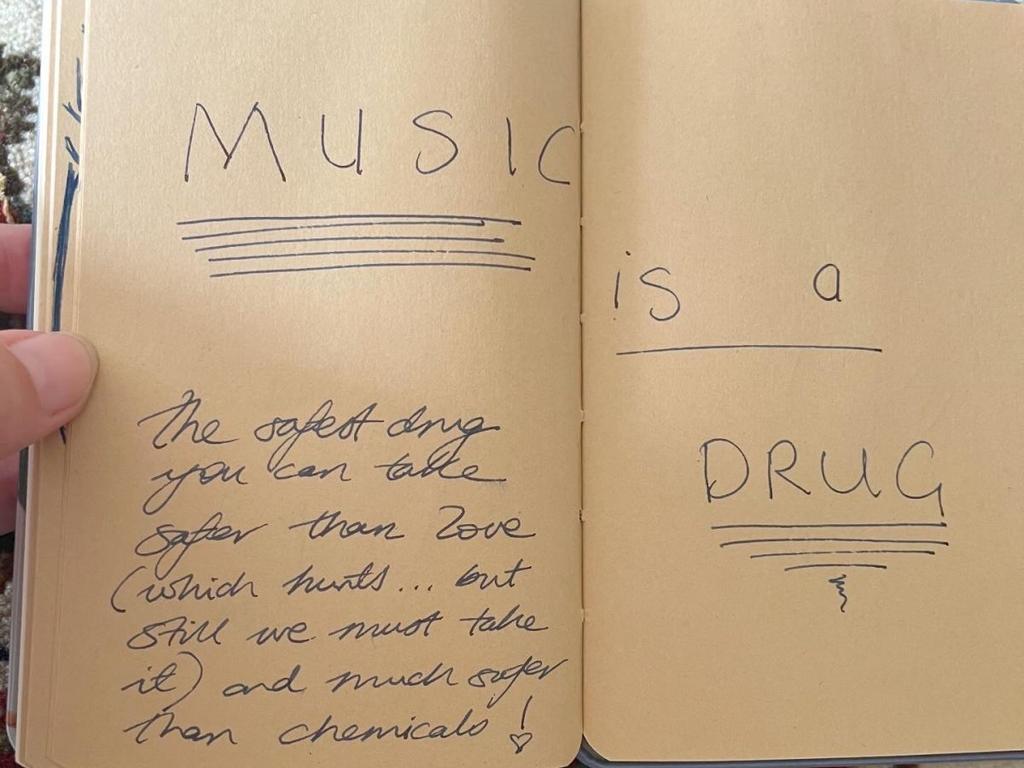 MUSIC
is a
DRUG
The safest drug
you can take
safer than Love
(which hurts... but
still we must take
it) and much safer
than chemicals!